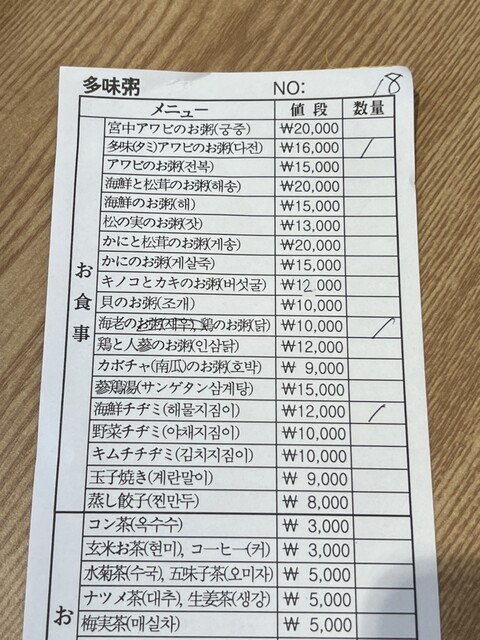 多味粥 NO: 18
メニュー 値段 数量
お食事
宮中アワビのお粥(궁중) ₩20,000
多味(タミ)アワビのお粥(다전) ₩16,000 /
アワビのお粥(전복) ₩15,000
海鮮と松茸のお粥(해송) ₩20,000
海鮮のお粥(해) ₩15,000
松の実のお粥(잣) ₩13,000
かにと松茸のお粥(게송) ₩20,000
かにのお粥(게살죽) ₩15,000
キノコとカキのお粥(버섯굴) ₩12,000
貝のお粥(조개) ₩10,000
海老のお粥(새우), 鶏のお粥(닭) ₩10,000 /
鶏と人蔘のお粥(인삼닭) ₩12,000
カボチャ(南瓜)のお粥(호박) ₩ 9,000
蔘鶏湯(サンゲタン삼계탕) ₩15,000
海鮮チヂミ(해물지짐이) ₩12,000 /
野菜チヂミ(야채지짐이) ₩10,000
キムチチヂミ(김치지짐이) ₩10,000
玉子焼き(계란말이) ₩ 9,000
蒸し餃子(찐만두) ₩ 8,000
お
コン茶(옥수수) ₩ 3,000
玄米お茶(현미), コーヒー(커) ₩ 3,000
水菊茶(수국), 五味子茶(오미자) ₩ 5,000
ナツメ茶(대추), 生姜茶(생강) ₩ 5,000
梅実茶(매실차) ₩ 5,000